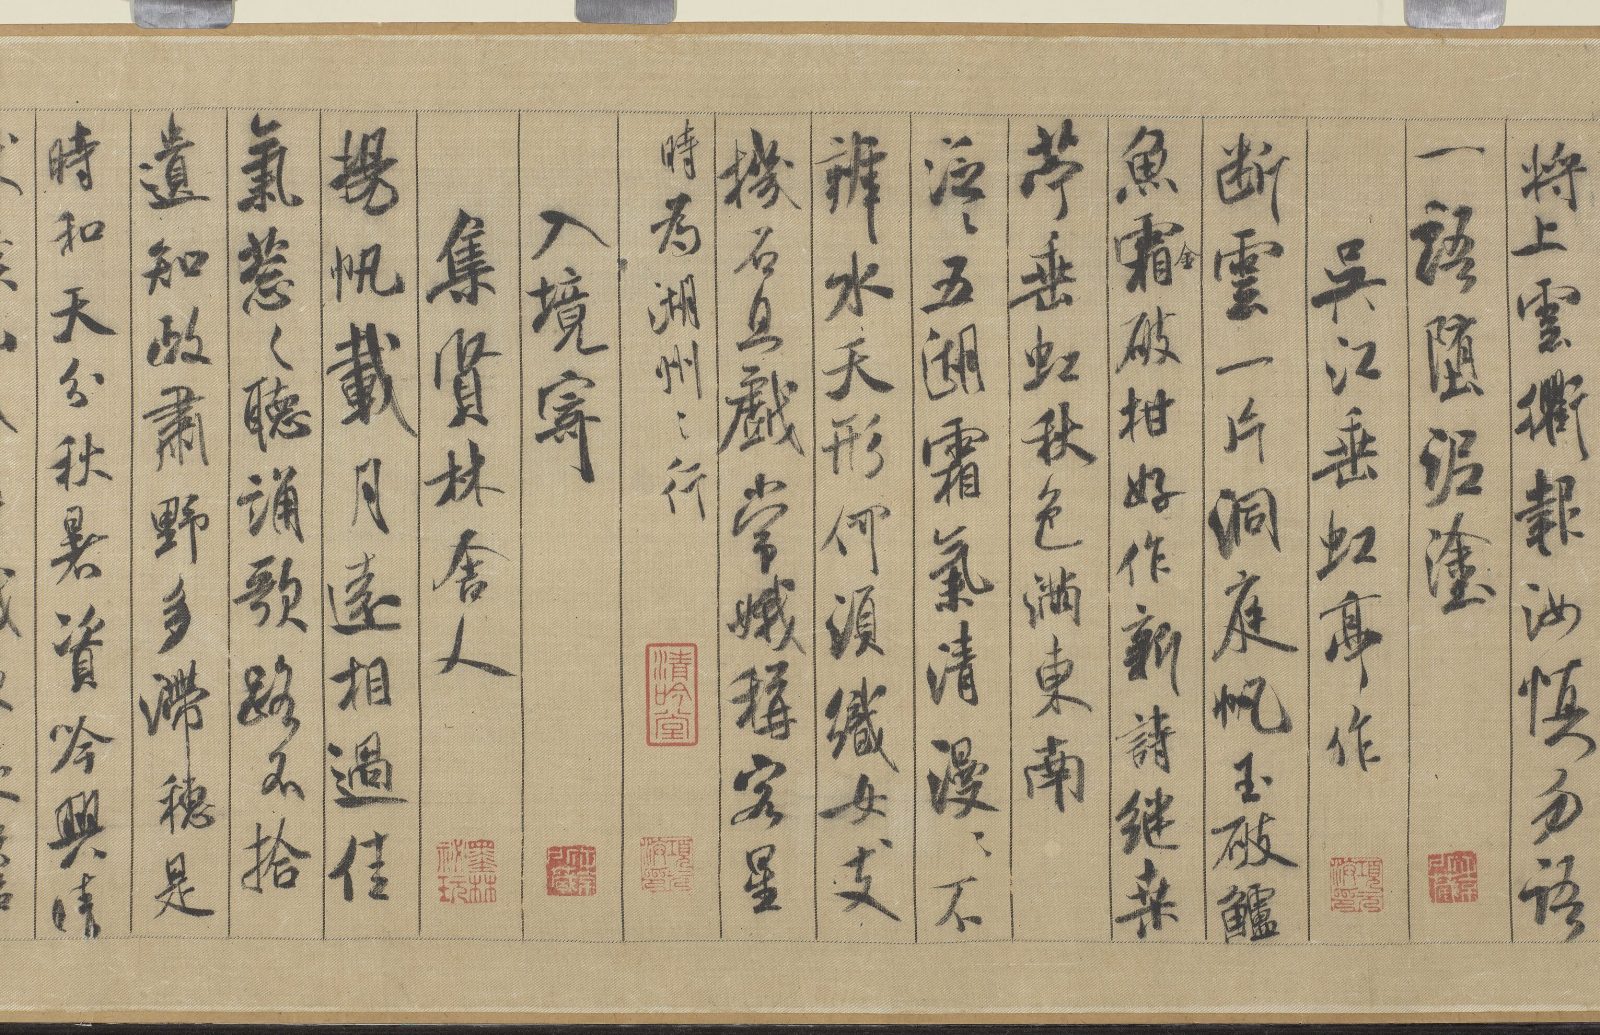 将上雲衢報汝慎勿語
一語堕泥塗
吳江垂虹亭作
断雲一片洞庭帆玉破鱸
魚霜金破柑好作新詩継桒
苧垂虹秋色滿東南
泛〻五湖霜氣清漫〻不
辨水天形何須織女支
機石且戲常娥稱客星
時為湖州〻行
清吟堂
入境寄
集賢林舍人
墨林祕玩
揚帆載月遠相過佳
氣葱〻聽誦歌路不拾
遺知政肅野多滯穗是
時和天分秋暑資吟興晴